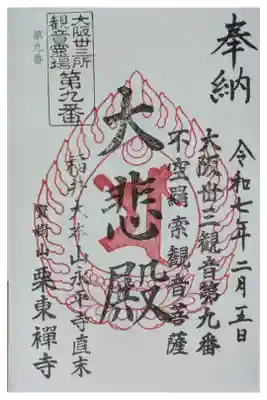 奉納
令和七年二月五日
大阪卅三観音第九番
不空羂索観音菩薩
大悲殿
大本山永平寺直末
栗東禅寺
大阪卅三所
観音霊場
第九番
第九番